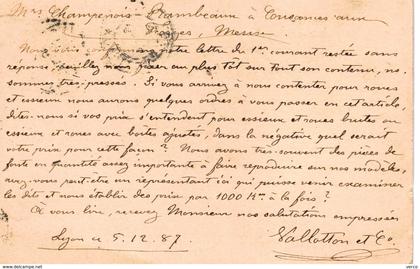 Mrs Champenois-Rambeaux à Cousances aux
Forges, Meuse
Nous vous confirmons notre lettre de 1er courant restée sans
réponse, veuillez nous fixer au plus tôt sur tout son contenu, ns.
sommes très pressés. Si vous arrivez à nous contenter pour roues
et essieux nous aurons quelques ordres à vous passer en cet article,
dites-nous si vos prix s'entendent pour essieux et roues brutes ou
essieux et roues avec boites ajustées, dans la négative quel serait
votre prix pour cette façon? Nous avons très souvent des pièces de
fonte en quantité assez importante à faire reproduire sur nos modèles,
avez-vous peut-être un représentant ici qui puisse venir examiner
les dits et nous établir des prix par 1000 Kos à la fois?
A vous lire, recevez Monsieur nos salutations empressées
Lyon le 5.12.87. Vallotton et Co.